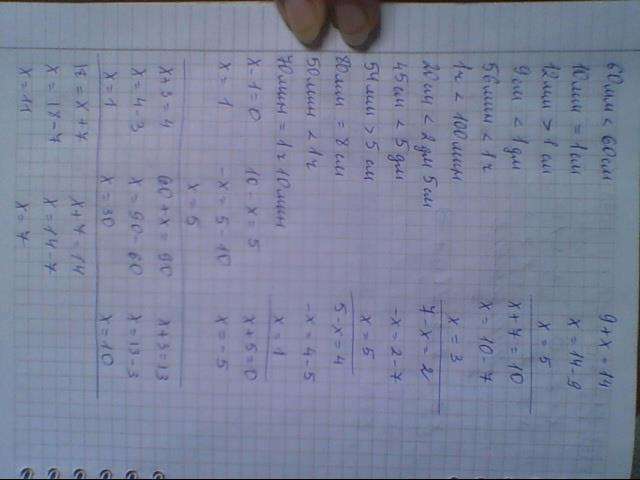 60мм < 60см
10мм = 1см
12мм > 1см
9см < 1дм
56мин < 1ч
1ч < 100мин
20см < 2дм 5см
45см < 5дм
54мм > 5см
80мм = 8см
50мин < 1ч
70мин = 1ч 10мин
9+x=14
x=14-9
x=5
x+7=10
x=10-7
x=3
7-x=2
-x=2-7
x=5
5-x=4
-x=4-5
x=1
x-1=0 10-x=5 x+5=0
x=1 -x=5-10 x=-5
x=5
x+3=4 60+x=90 x+3=13
x=4-3 x=90-60 x=13-3
x=1 x=30 x=10
18=x+7 x+7=14
x=18-7 x=14-7
x=11 x=7